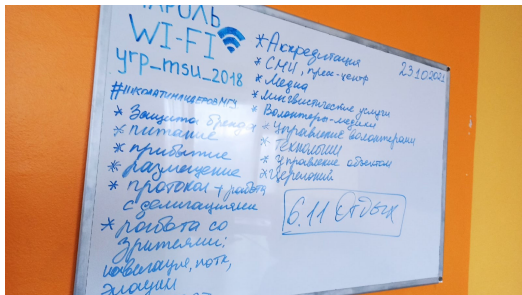 ПАРОЛЬ
WI-FI
yrp_msu_2018
#школалидидеровМГУ
* Защита бренда
* питание
* прибытие
* размещение
* протокол + работа
с делегациями
* работа со
зрителями:
навигация, потк,
эмоции
23.10.2021
* Аккредитация
* СМИ, пресс-центр
* Медиа
* Лингвистические услуги
* Волонтеры-медики
* Управление волонтерами
* Технологии
* Управление объектом
* Церемоний
6.11 Отдых